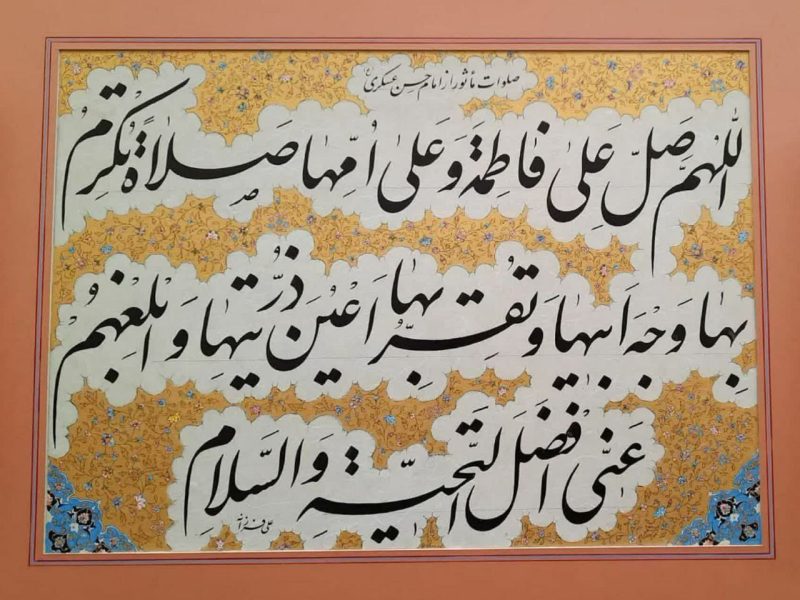 صلوات مأثور از امام حسن عسکری (ع)
اللّهُمَّ صَلِّ عَلیٰ فاطِمَةَ وَ عَلیٰ اُمِّهٰا صَلاٰةً تُکْرِمُ
بِهٰا وَجْهَ اَبیهٰا وَ تُقِرُّ بِهٰا اَعْیُنَ ذُرّیَتِهٰا وَ اَبْلِغْهُمْ
عَنّی اَفْضَلَ التَّحیَّةِ وَ السَّلاٰمِ